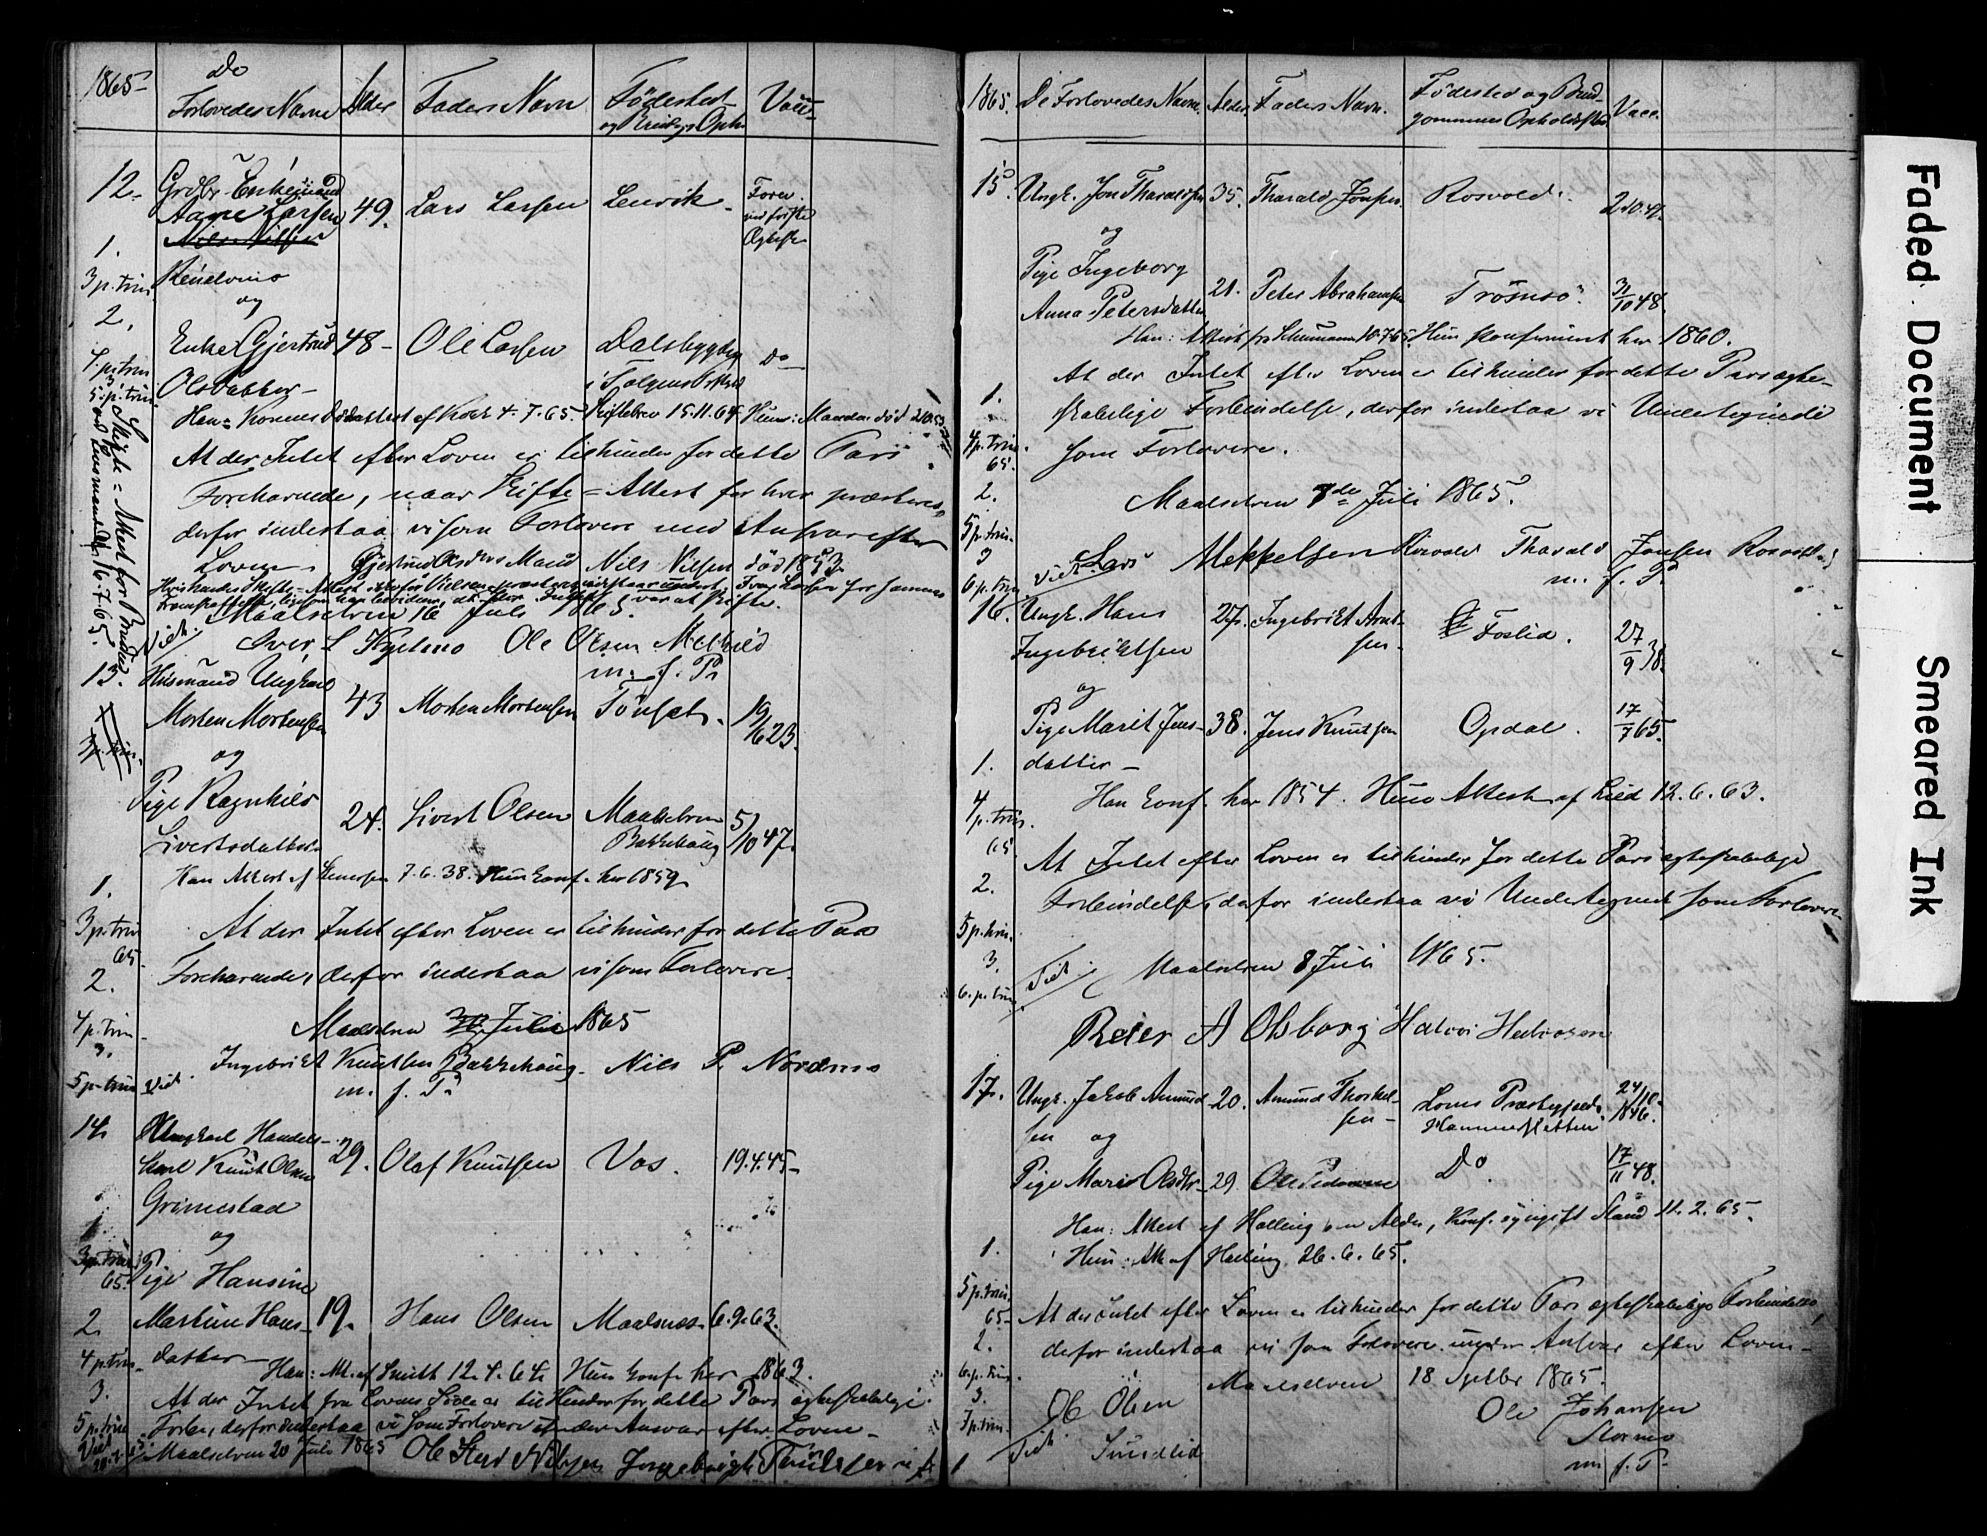 1865
De
Forlovedes Navne
Alder
Faders Navn
Fødested
og Brudgs Oph.
Vacc.
12.
Grdbr. Enkemand
Aage Larsen
Nils Nilsen
49.
Lars Larsen
Lenvik
Forev.
ved første
Ægtesk.
1.
3 p. trin.
og
2.
Enke Gjertrud
48
Ole Larsen
Dalsbygden
Do
4. p. trin
3.
5. p. trin.
i Tolgens
Han: Konens Dødsattest af 4.7.65. Skiftebrev 15.11.64. Hun: Manden død
At der Intet efter Loven er tilhinder for dette Pars
Forehavende, naar Skifte-Attest for hver præsteres,
derfor indestaa vi som Forlovere med Ansvar efter
Loven.
Gjertrud Olsdtrs Mand Nils Nilsen død 1853.
Maalselven 16 Juli 1865.
Vidt.
Iver L Kjelmo Ole Olsen
m. f. P.
Skifte-Attest for Bruden
16.7.65.
13.
Husmand Ungkarl
Morten Mortensen
43
Morten Mortensen
Tønset.
19/6 23.
og
Pige Ragnhild
Sivertsdatter
24.
Sivert Olsen
Maalselven
Bakkehaug
5/10 47.
Han Attest af Stenersen 7.6.38. Hun konf. her 1859
1.
3 p. trin
65.
At der Intet efter Loven er tilhinder for dette Pars
Forehavende, derfor indestaa vi som Forlovere.
2.
4 p. trin
3.
5 p. trin
Maalselven Juli 1865
Vidt.
Ingebrikt Knutsen Bakkehaug. Nils P. Nordmo
m. f. P.
14.
Ungkarl Handels-
karl Knut Olsen
Grimestad
29.
Olaf Knutsen
Vos.
19.4.45
og
1
3 p. trin
65.
Pige Hansine
Martine Hans-
datter
19.
Hans Olsen
Maalsnes
6.9.63.
2
4 p. trin
3.
5 p. trin
Han: Att. af Smitt 12.4.64. Hun konf. her 1863.
At der Intet fra Lovens Side er til Hinder for dette Pars ægteskabelige
Forbin, derfor indestaa vi som Forlovere under Ansvar efter Loven
Maalselven 20 Juli 1865
Vidt
1865.
De Forlovedes Navne.
Alder
Faders Navn.
Fødested og Brud-
gommens Opholdssted
Vacc.
15
Ungk. Jon Tharaldsen
35.
Tharald Jonsen.
Rosvold.
og
Pige Ingeborg
Anna Petersdatter
21.
Peter Abrahamsen
Tromsø.
31/10 48.
Han: Attest fra Schumann 10.7.65. Hun konfirmeret her 1860.
At der Intet efter Loven er tilhinder for dette Pars ægte-
skabelige Forbindelse, derfor indestaa vi Undertegnede
som Forlovere.
1.
4 p. trin.
65.
2.
5 p. trin.
3
6. p. trin
Maalselven 7de Juli 1865.
Vidt.
Lars Mikkelsen Rosvold Tharald Jonsen Rosvold
m. f. P.
16.
Ungk. Hans
Ingebriktsen
27.
Ingebrikt Arnt-
sen.
Foslid.
27/9 38.
og
Pige Marit Jens-
datter
38.
Jens Knutsen
Opdal.
17/7 65.
Han konf. her 1854. Hun Attest af Lied 12.6.63.
1.
4
p. trin.
65
At Intet efter Loven er tilhinder for dette Pars ægteskabelige
Forbindelse, derfor indestaa vi Undertegnede som Forlovere
2.
5 p. trin.
3.
6. p. trin
Vidt
Maalselven 8 Juli 1865.
Peter A Olsborg Halvor Halvorsen
17.
Ungk. Jakob Amund-
sen og
20.
Amund Thorkel-
sen
Loms Præstegjeld
Hammerstetten
24/10
1846.
Pige Marit Olsdtr.
29
Ole Pedersen
Do.
17/11 48.
Han: Attest af Halling om Alder, Konf. og ugift Stand 11.2.65.
Hun: Att. af Halling 26.6.65.
1.
5 p. trin.
65
At der Intet efter Loven er tilhinder for dette Pars ægteskabelige Forbindelse,
derfor indestaa vi som Forlovere under Ansvar efter Loven
2.
6. p. trin.
3
7 p. trin.
Maalselven 18 Septbr 1865.
Ole Olsen
Sundlid
Ole Johansen
Stormo
m. f. P.
Vidt.
Faded Document
Smeared Ink